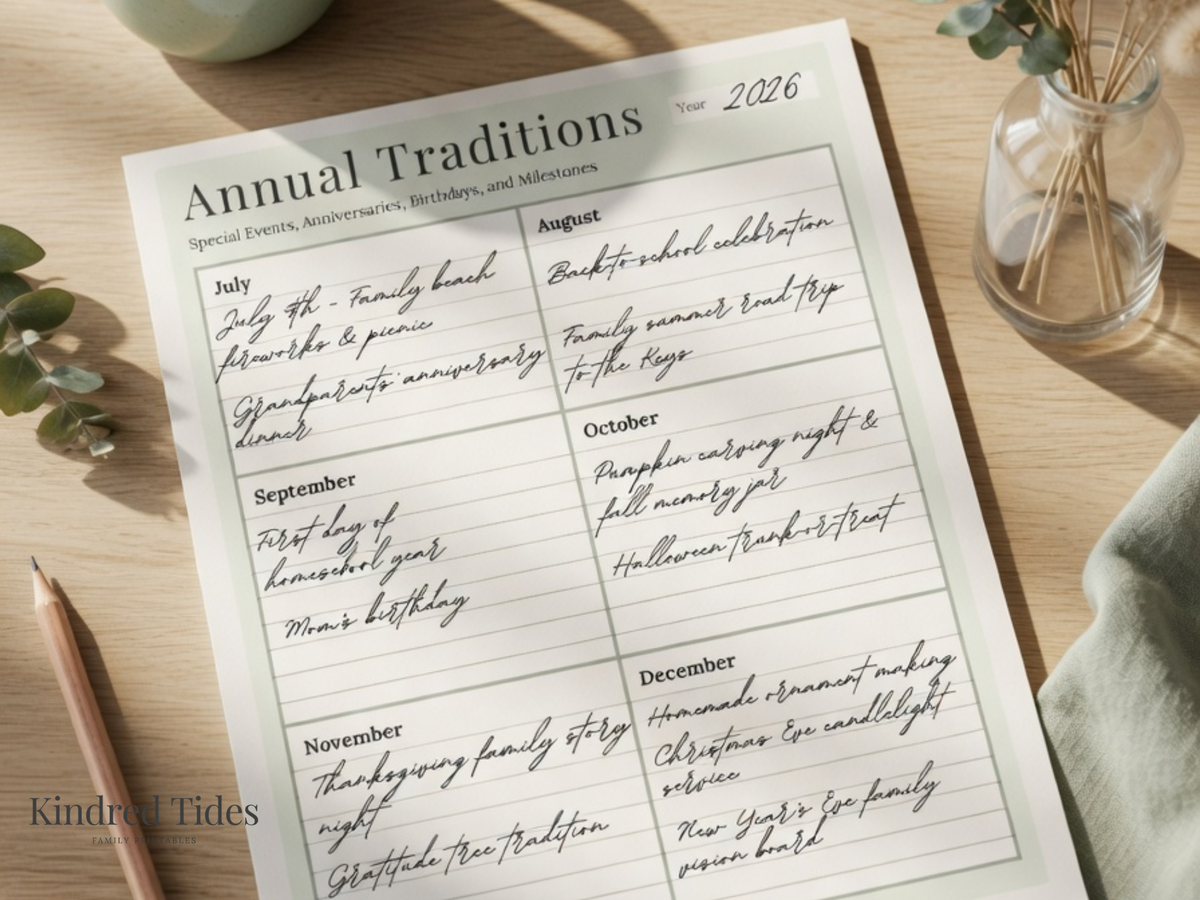 Annual Traditions
Year 2026
Special Events, Anniversaries, Birthdays, and Milestones
July
July 4th - Family beach
fireworks & picnic
Grandparents' anniversary
dinner
August
Back-to-school celebration
Family summer road trip
to the Keys
September
First day of
homeschool year
Mom's birthday
October
Pumpkin carving night &
fall memory jar
Halloween trunk-or-treat
November
Thanksgiving family story
night
Gratitude tree tradition
December
Homemade ornament making
Christmas Eve candlelight
service
New Year's Eve family
vision board
Kindred Tides
FAMILY PRINTABLES